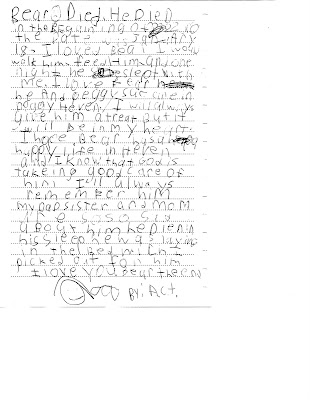 Bear Died. He Died
in the Beginning of
the Date ... January
18. I loved Bear I would
walk him, feed him, and one
night he slept with
me. I love Bear
he And peggy sue are in
Doggy Heven. I will always
give him a treat But it
will be in my heart.
I hope Bear has a
happy life in Heven
and I know that God is
takeing good care of
him. I'll always
remember him
my Dad sister and mom
are so so sad
about him he Died in
his sleep he was laying
in the Bed wich I
picked out for him
I love you Bear the End
By: A.C.T.